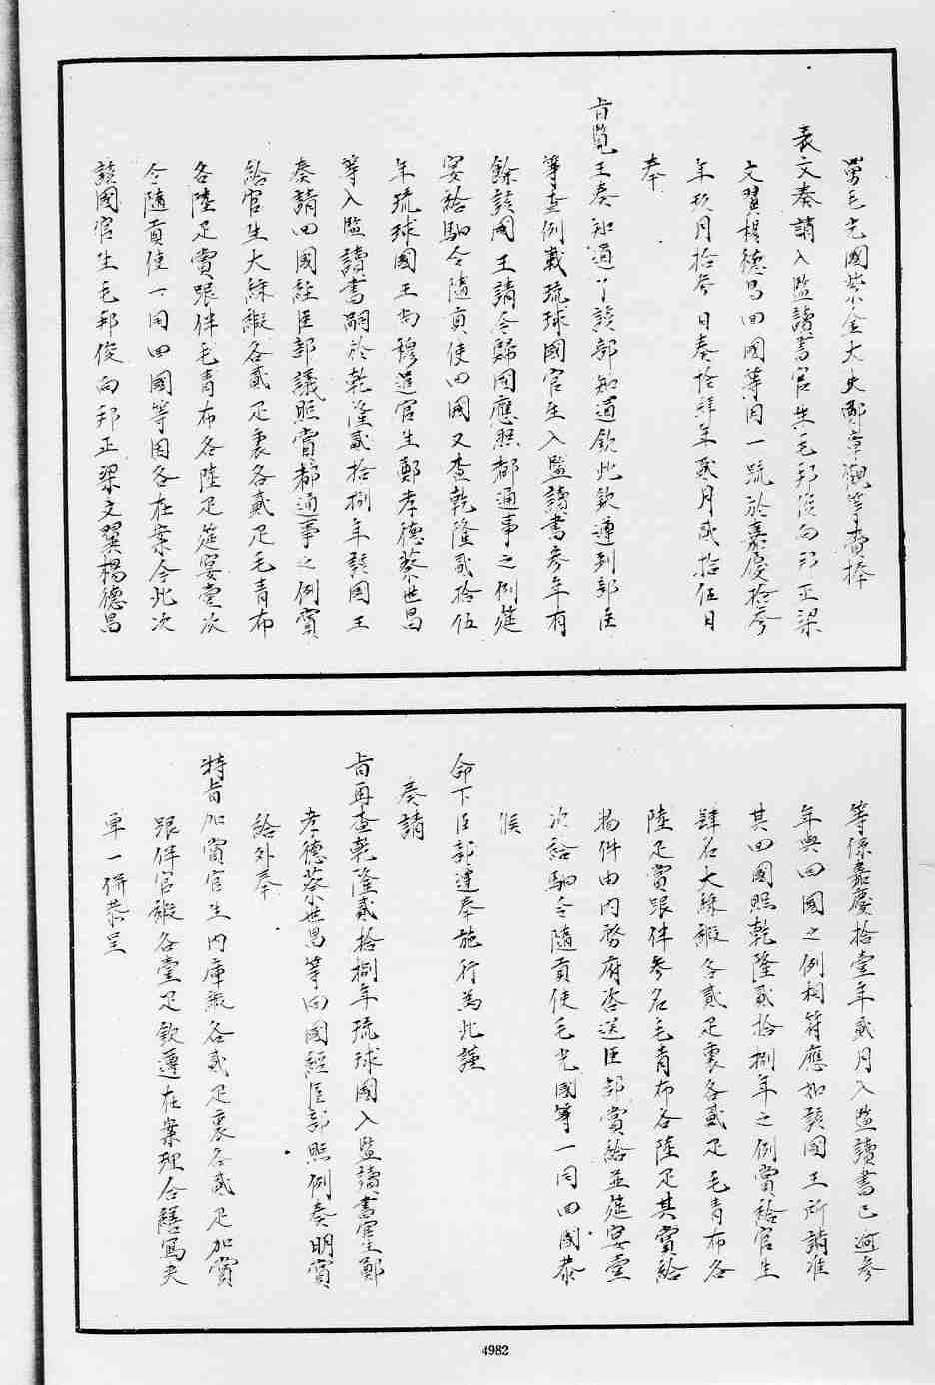 爵毛光國紫金大夫鄭章觀等齎捧
表文奏請入監讀書官生毛邦俊向邦正梁
文翼楊德昌回國等因一疏於嘉慶拾參
年玖月拾參日奏拾肆年貳月貳拾伍日
奉
旨覽王奏知道了該部知道欽此欽遵到部臣
等查例載琉球國官生入監讀書參年有
餘該國王請令歸國應照都通事之例筵
宴給馳令隨貢使回國又查乾隆貳拾伍
年琉球國王尚穆遣官生鄭孝德蔡世昌
等入監讀書嗣於乾隆貳拾捌年該國王
奏請回國經臣部議照賞都通事之例賞
給官生大綵緞各貳疋裏各貳疋毛青布
各陸疋賞跟伴毛青布各陸疋筵宴壹次
令隨貢使一同回國等因各在案今此次
該國官生毛邦俊向邦正梁文翼楊德昌
等係嘉慶拾壹年貳月入監讀書已逾參
年與回國之例相符應如該國王所請准
其回國照乾隆貳拾捌年之例賞給官生
肆名大綵緞各貳疋裏各貳疋毛青布各
陸疋賞跟伴參名毛青布各陸疋其賞給
物件由內務府咨送臣部賞給並筵宴壹
次給馳令隨貢使毛光國等一同回國恭
候
命下臣部遵奉施行為此謹
奏請
旨再查乾隆貳拾捌年琉球國入監讀書官生鄭
孝德蔡世昌等回國經臣部照例奏明賞
給外奉
特旨加賞官生內庫緞各貳疋裏各貳疋加賞
跟伴官緞各壹疋欽遵在案理合繕寫夾
單一併恭呈
4982